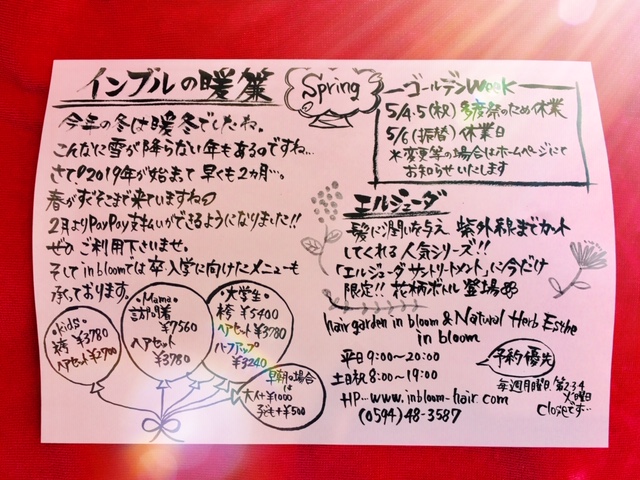 インブルの暖簾
Spring
今年の冬は暖冬でしたね。
こんなに雪が降らない年もあるのですね…
さて!2019年が始まって早くも2カ月…。
春がすぐそこまで来ていますね
2月よりPayPay支払いができるようになりました!!
ぜひご利用下さいませ。
そしてin bloomでは卒・入学に向けたメニューも
承っております。
・kids・
袴 ¥3780
ヘアセット¥2700
・Mama・
訪問着
¥7560
ヘアセット
¥3780
・大学生・
袴 ¥5400
ヘアセット¥3780
ハーフアップ
¥3240
早朝の場合
は
大人+¥1000
子ども+¥500
ゴールデンweek
5/4.5(祝) 多度祭のため休業
5/6(振替) 休業日
※変更等の場合はホームページにて
お知らせいたします
エルジューダ
髪に潤いを与え 紫外線までカット
してくれる人気シリーズ!!
「エルジューダサントリートメント」に今だけ
限定!! 花柄ボトル登場
hair garden in bloom & Natural Herb Esthe
in bloom
平日 9:00〜20:00
土日祝 8:00〜19:00
HP…www.inbloom-hair.com
(0594)48-3587
予約優先
毎週月曜日.第2.3.4
火曜日
closeです…